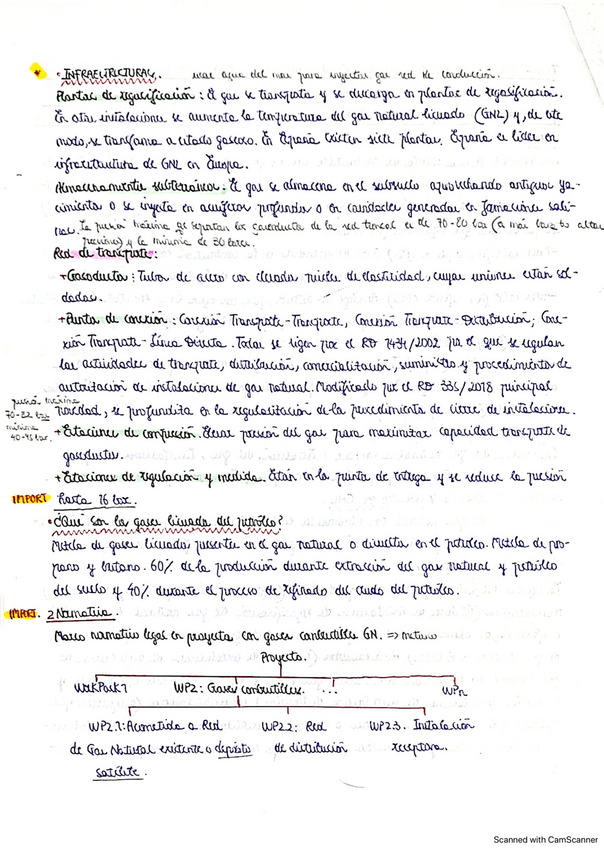 • INFRAESTRUCTURAS. usar agua del mar para inyectar gas red de conducción.
Plantas de regasificación: El gas se transporta y se descarga en plantas de regasificación.
En estas instalaciones se aumenta la temperatura del gas natural licuado (GNL) y, de este
modo, se transforma a estado gaseoso. En España existen siete plantas. España es líder en
infraestructura de GNL en Europa.
Almacenamientos subterráneos: El gas se almacena en el subsuelo aprovechando antiguos ya-
cimientos o se inyecta en acuíferos profundos o en cavidades generadas en formaciones sali-
nas. La presión máxima que soportan los gasoductos de la red troncal es de 70-80 bar (a más
presiones) y la mínima de 30 bares.
Red de transporte:
+ Gasoductos: Tubos de acero con elevados niveles de elasticidad, cuyas uniones están sol-
dadas.
+ Puntos de conexión: Conexión Transporte-Transporte, Conexión Transporte-Distribución; Cone-
xión Transporte-Línea Directa. Todas se rigen por el RD 1434/2002 por el que se regulan
las actividades de transporte, distribución, comercialización, suministro y procedimientos de
autorización de instalaciones de gas natural. Modificado por el RD 335/2018 principal
novedad, se profundiza en la regularización de los procedimientos de cierre de instalaciones.
presión máxima
70-82 bar
mínima
40-45 bar.
+ Estaciones de compresión. Elevar presión del gas para maximizar capacidad transporte de
gasoductos.
+ Estaciones de regulación y medida. Están en los puntos de entrega y se reduce la presión
IMPORT hasta 16 bar.
• ¿Qué son los gases licuados del petróleo?
Mezcla de gases licuados presentes en el gas natural o disueltos en el petróleo. Mezcla de pro-
pano y butano. 60% de la producción durante extracción del gas natural y petróleo
del suelo y 40% durante el proceso de refinado del crudo del petróleo.
IMPORT. 2 Normativa.
Marco normativo legal en proyectos con gases combustibles GN. => metano
Proyecto.
WorkPack1 WP2: Gases combustibles. ... WPn
WP2.1: Acometida a Red WP2.2: Red WP2.3. Instalación
de Gas Natural existente o depósito de distribución receptora.
satélite.
Scanned with CamScanner